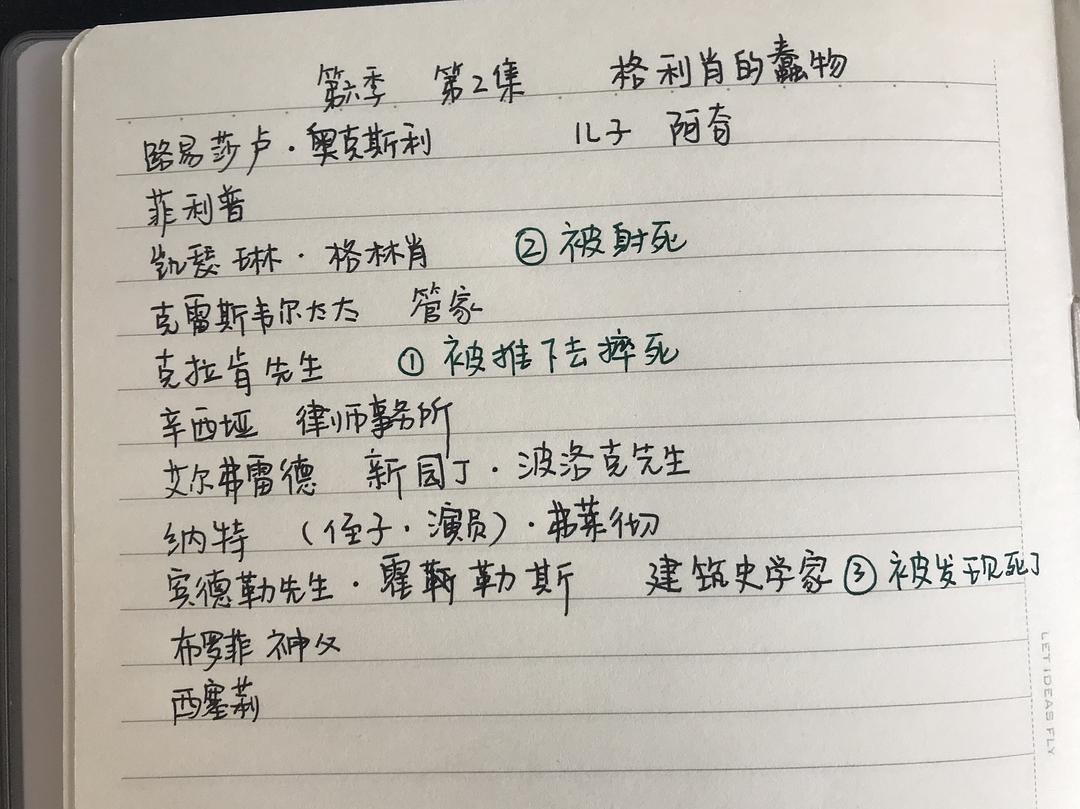 第六季 第2集 格利肖的蠢物
路易莎卢·奥克斯利 儿子 阿奇
菲利普
凯瑟琳·格林肖 ②被射死
克雷斯韦尔太太 管家
克拉肯先生 ①被推下去摔死
辛西娅 律师事务所
艾尔弗雷德 新园丁·波洛克先生
纳特 (侄子·演员)·弗莱彻
宾德勒先生·霍勒斯 建筑史学家③被发现死了
布罗菲 神父
西塞莉
LET IDEAS FLY